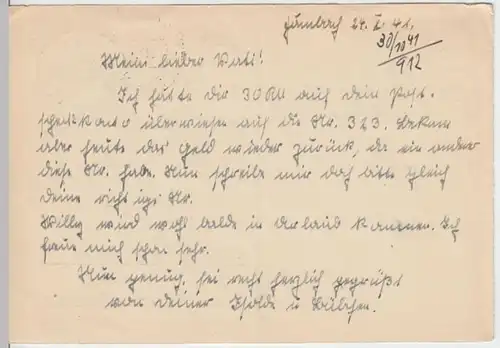 24. X. 41.
30/10 41
912
Mein lieber Vati!
Ich hatte dir 30 RM auf dein Post-
scheckkonto überwiesen auf die Nr. 323. Bekam
aber heute das Geld wieder zurück, da ein anderer
diese Nr. habe. Nun schreibe mir doch bitte gleich
deine richtige Nr.
Willy wird wohl balde in Urlaub kommen. Ich
freue mich schon sehr.
Nun genug, sei recht herzlich gegrüßt
von deiner Isolde u Bübchen.